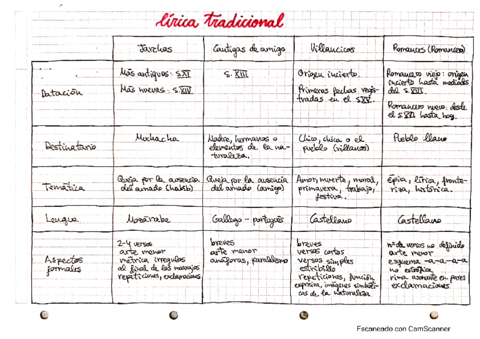 lírica tradicional
Jarchas
Cantigas de amigo
Villancicos
Romances (Romancero)
Datación
Más antiguas: s.XI
Más nuevas: s.XIV
s. XIII
Origen incierto.
Primeras fechas regis-
tradas en el s.XV.
Romancero viejo: origen
incierto hasta mediados
del s.XVI.
Romancero nuevo: desde
el s.XVI hasta hoy.
Destinatario
Muchacha
Madre, hermanas o
elementos de la na-
turaleza.
Chico, chica o el
pueblo (villanos)
Pueblo llano
Temática
Queja por la ausencia
del amado (habib)
Queja por la ausencia
del amado (amigo)
Amor, muerte, moral,
primavera, trabajo,
festiva.
Épica, lírica, fronte-
riza, histórica.
Lengua
Mozárabe
Gallego - portugués
Castellano
Castellano
Aspectos
formales
2-4 versos
arte menor
métrica irregular
al final de las moaxajas
repeticiones, exclamaciones
breves
arte menor
anáforas, paralelismo
breves
versos cortos
versos simples
estribillo
repeticiones, función
expresiva, imágenes simbóli-
cas de la naturaleza
nº de versos no definido
arte menor
esquema -a-a-a-a
no estrófica
rima asonante en pares
exclamaciones
Escaneado con CamScanner